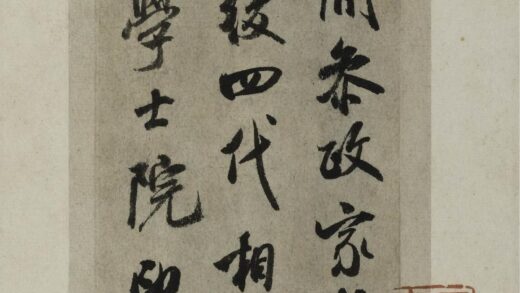 參政家
後四代相
學士院印